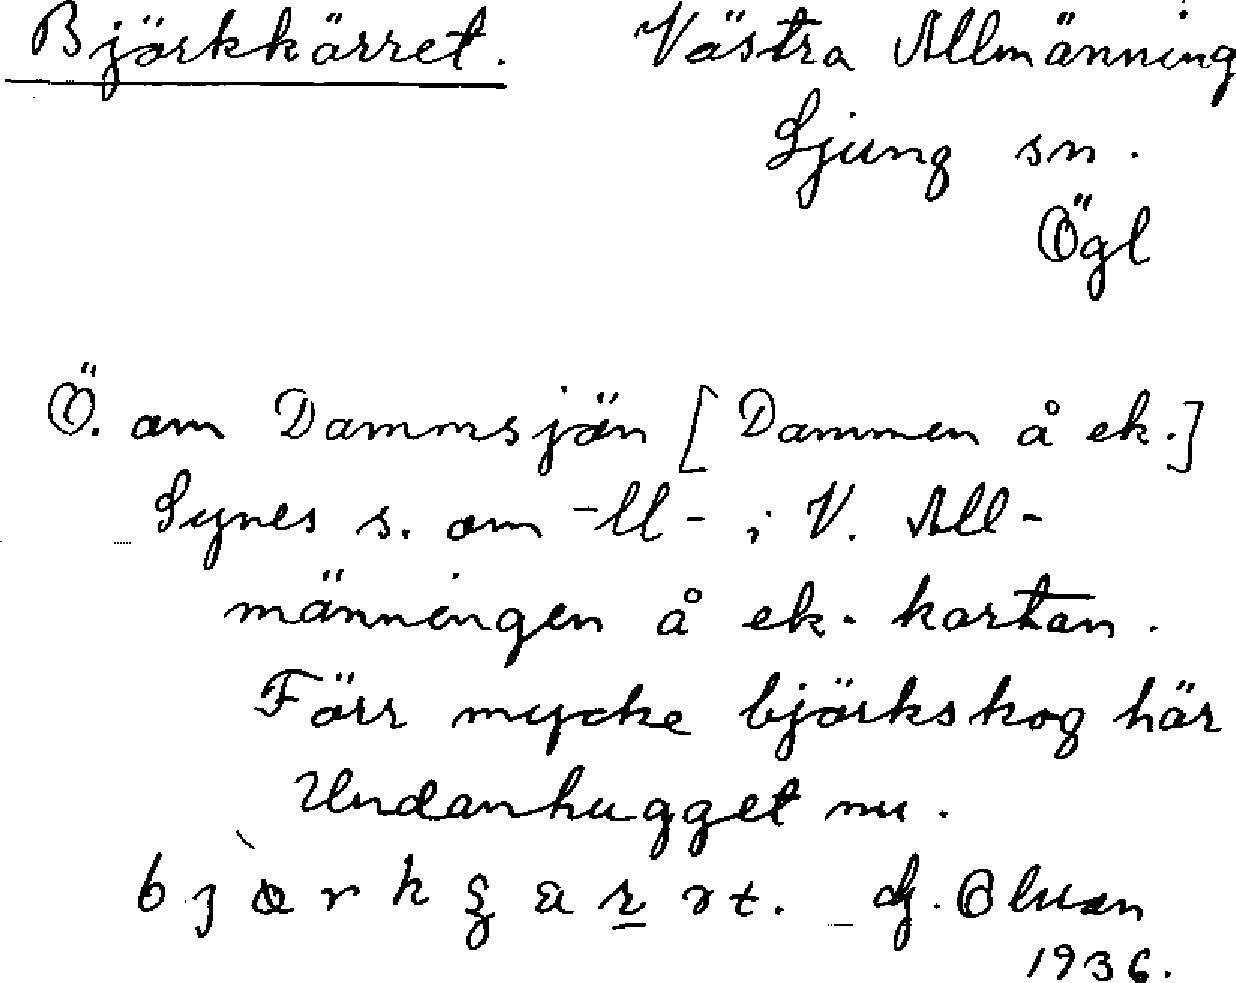 Björkkärret. Västra Allmänning
Ljung sn.
Ögl
Ö. om Dammsjön [Dammen å ek.]
Synes s. om -ll- i V. All-
männingen å ek. kartan.
Förr mycke björkskog här
Undanhugget nu.
1936.